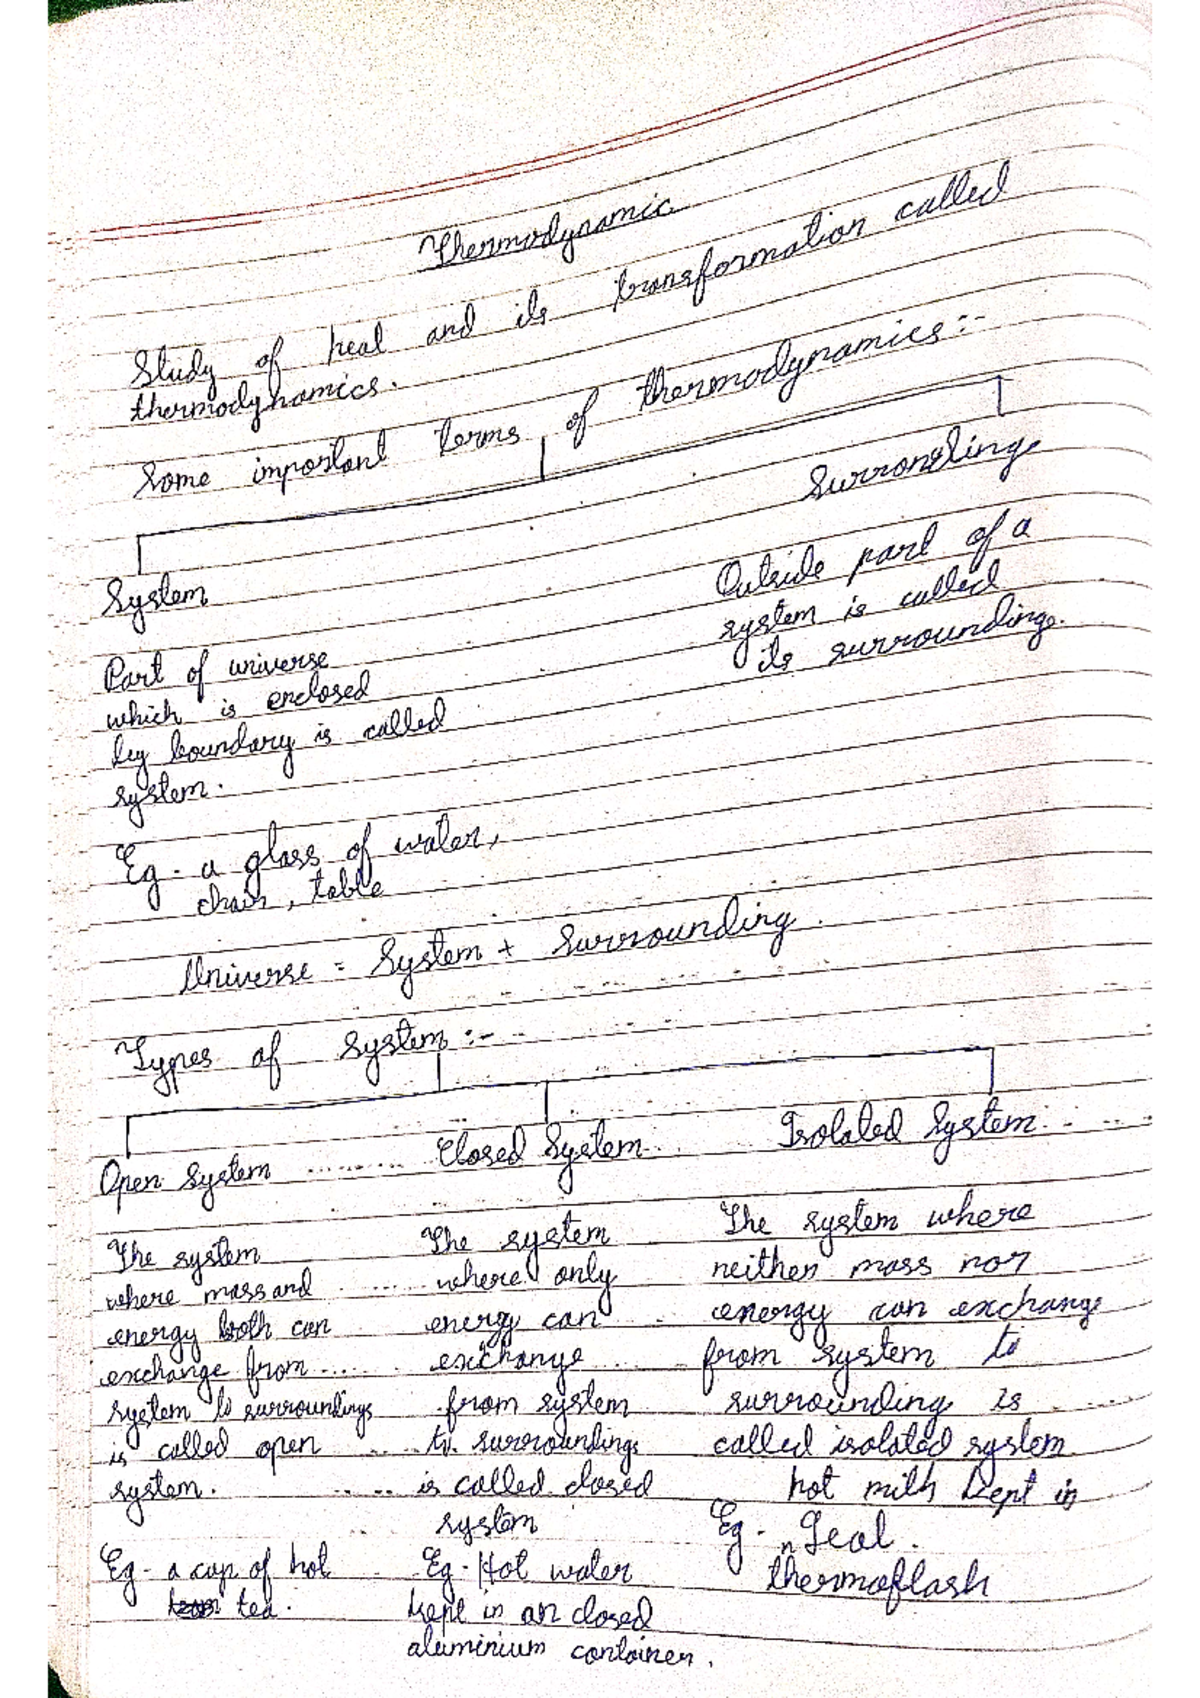 Thermodynamic
Study of heat and its transformation called
thermodynamics.
Some important terms of thermodynamics:-
System
Part of universe
which is enclosed
by boundary is called
system.
Eg- a glass of water,
chair, table
Surrounding
Outside part of a
system is called
its surroundings.
Universe = System + Surrounding.
Types of system:-
Open System
The system
where mass and
energy both can
exchange from
system to surroundings
is called open
system.
Eg- a cup of hot
tea.
Closed System
The system
where only
energy can
exchange
from system
to surroundings
is called closed
system
Eg- Hot water
kept in an closed
aluminium container.
Isolated System
The system where
neither mass nor
energy can exchange
from system to
surrounding is
called isolated system
Eg- hot milk kept in
thermoflash